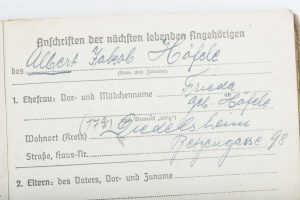 Anschriften der nächsten lebenden Angehörigen
des Albert Jakob Höfele
(Vor- und Zuname)
1. Ehefrau: Vor- und Mädchenname Frieda
geb. Höfele
(17a) Diedelsheim
Wohnort (Kreis)
Straße, Haus-Nr. Retzengasse 98
2. Eltern: des Vaters, Vor- und Zuname